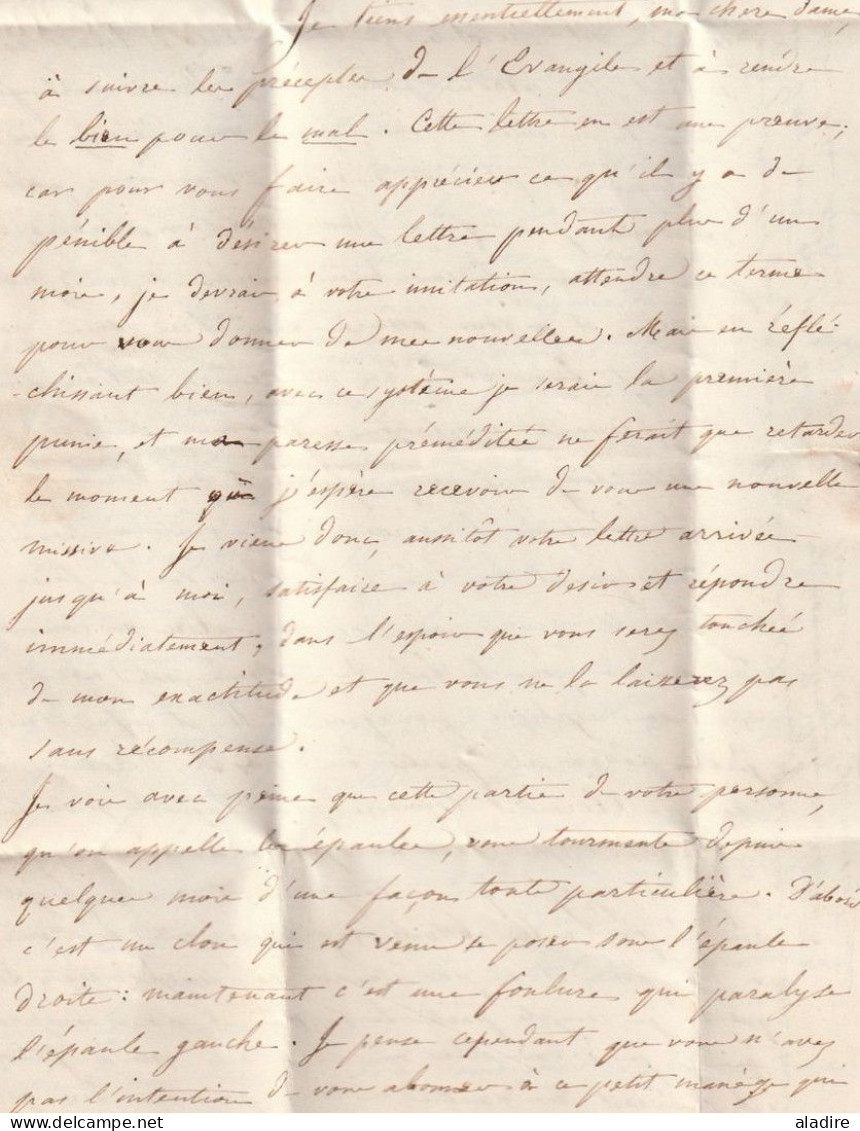 Je tiens essentiellement, ma chere dame,
à suivre les préceptes de l'Evangile et à rendre
le bien pour le mal. Cette lettre en est une preuve;
car pour vous faire apprécier ce qu'il y a de
pénible à désirer une lettre pendant plus d'un
mois, je devrais, à votre imitation, attendre ce terme
pour vous donner de mes nouvelles. Mais en réflé-
-chissant bien, avec ce système je serais la première
punie, et ma paresse préméditée ne ferait que retarder
le moment où j'espère recevoir de vous une nouvelle
missive. Je viens donc, aussitôt votre lettre arrivée
jusqu'à moi, satisfaire à votre desir et répondre
immédiatement, dans l'espoir que vous serez touchée
de mon exactitude et que vous ne la laizerez pas
sans récompense.
Je vois avec peine que cette partie de votre personne,
qu'on appelle les épaules, vous tourmente depuis
quelques mois d'une façon toute particulière. D'abord
c'est un clou qui est venu se poser sous l'épaule
droite: maintenant c'est une foulure qui paralyse
l'épaule gauche. Je pense cependant que vous n'avez
pas l'intention de vous abonner à ce petit manège qui
aladire